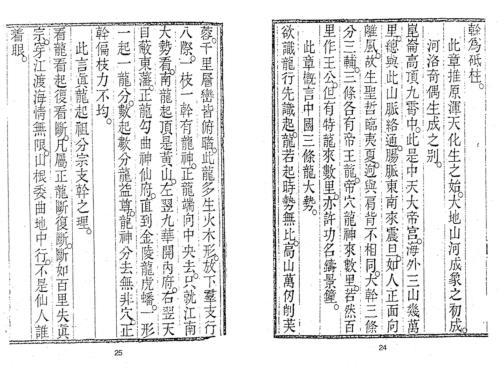 幹為砥柱。
此章推原渾天化生之始。大地山河成象之初。
河洛奇偶生成之別。
崑崙高頂九霄中。此是中天大帝宮。海外三山幾萬
里。總與此山脈絡通。腸脈東南來震旦。如人正面向
離風。故生聖哲臨夷夏。迥與肩背不相同。大幹三條
分三輔。三條各有帝王龍。帝穴龍神來數里。若然百
里作王公。但有特龍來數里。亦許功名鑄景鐘。
此章概言中國三條龍大勢。
欲識龍行先識起。龍若起時勢無比。高山萬仞削芙
24
蓉。千里層巒皆俯職。此龍多生火木形。放下羣支行
八際。一枝一幹有龍神。正龍端向中央去。只就江南
大勢看。南龍起頂是黃山。左翌九華開內府。右翌天
目敵東藩。正龍勾曲神仙府。直到金陵龍虎蟠。一形
一起一龍分。數起數分龍益尊。龍神分去無非穴。正
幹偏枝力不均。
此言真龍起祖分宗支幹之理。
看龍看起復看斷。凡屬正龍斷復斷。斷如百里失真
宗。穿江渡海情無限。山根委曲地中行。不是仙人誰
着眼。
25